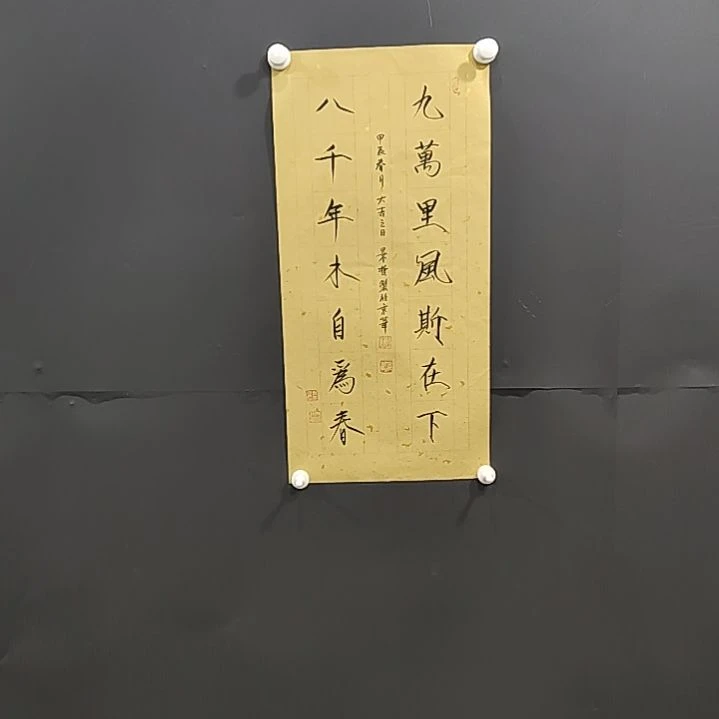 九萬里風斯在下
甲辰春月 大吉之日
八千年木自為春